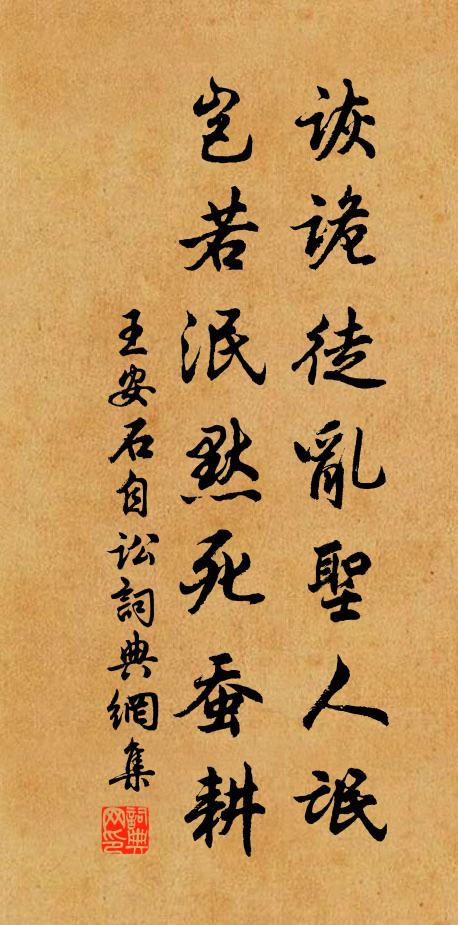 詼詭徒亂聖人氓
豈若泯默死蚕耕
王安石自訟詞典網集
詞典网印